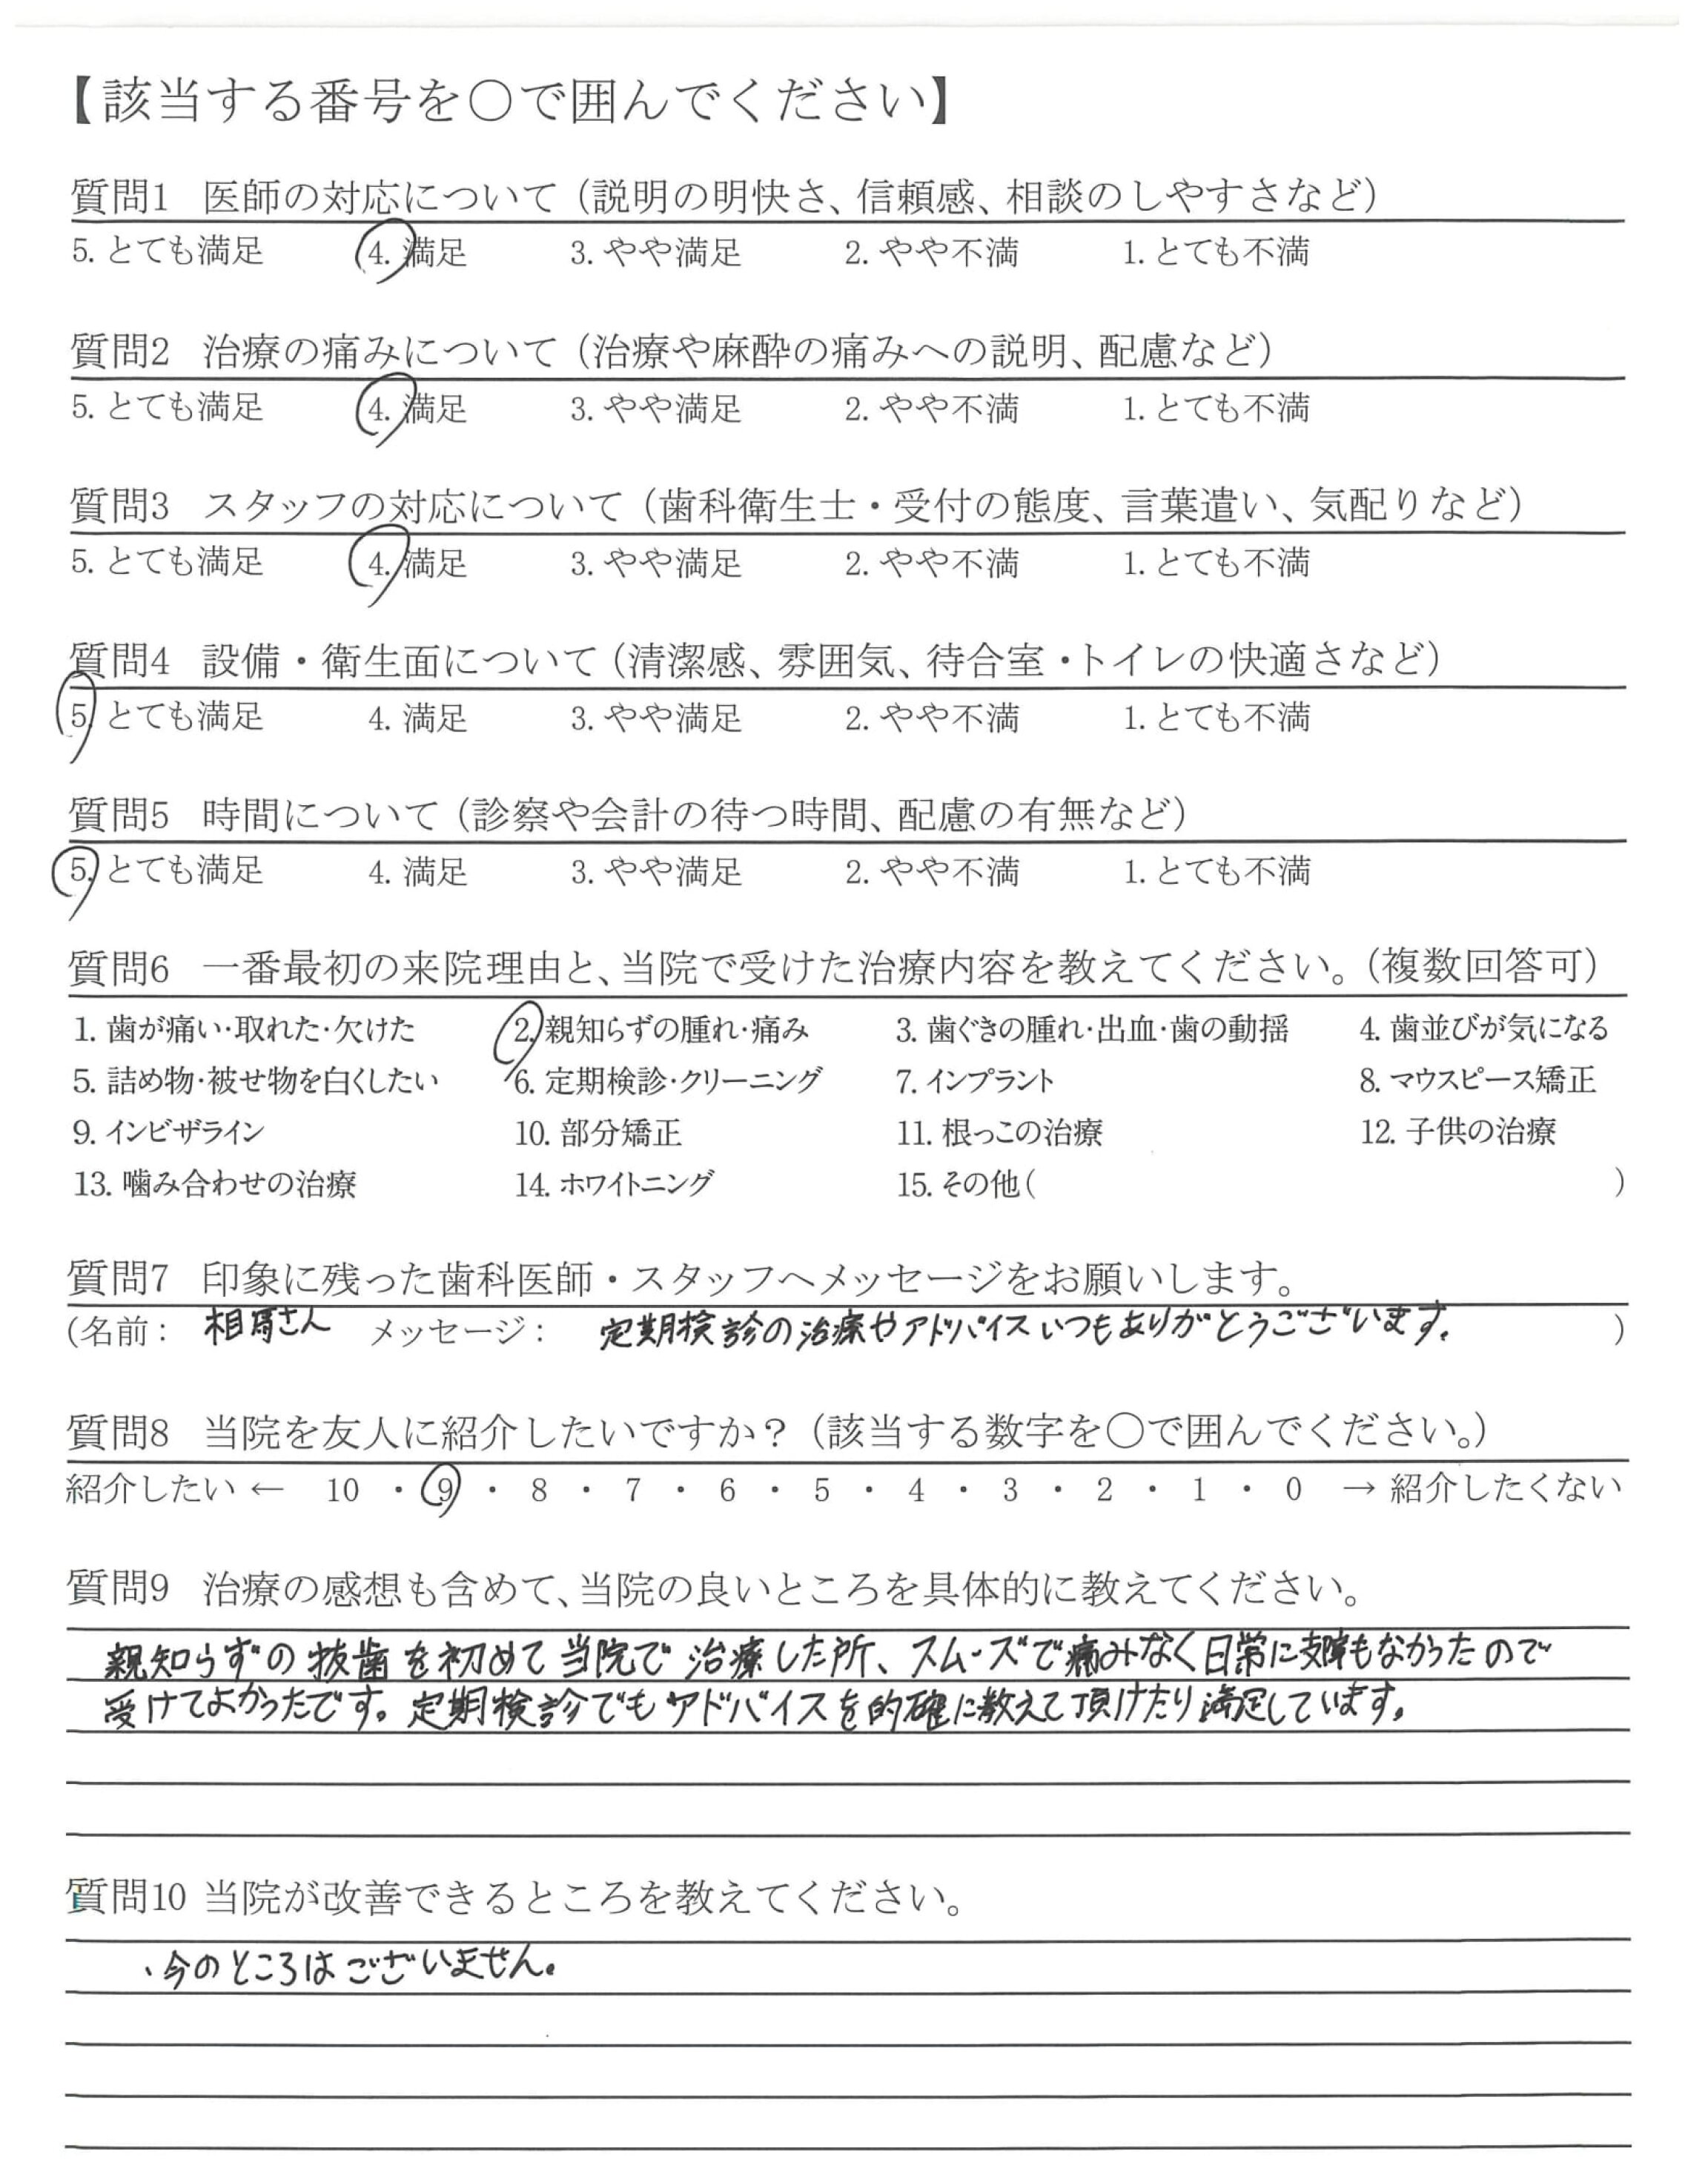 【該当する番号を〇で囲んでください】
質問1 医師の対応について（説明の明快さ、信頼感、相談のしやすさなど）
5. とても満足 4. 満足 3. やや満足 2. やや不満 1. とても不満
質問2 治療の痛みについて（治療や麻酔の痛みへの説明、配慮など）
5. とても満足 4. 満足 3. やや満足 2. やや不満 1. とても不満
質問3 スタッフの対応について（歯科衛生士・受付の態度、言葉遣い、気配りなど）
5. とても満足 4. 満足 3. やや満足 2. やや不満 1. とても不満
質問4 設備・衛生面について（清潔感、雰囲気、待合室・トイレの快適さなど）
5. とても満足 4. 満足 3. やや満足 2. やや不満 1. とても不満
質問5 時間について（診察や会計の待つ時間、配慮の有無など）
5. とても満足 4. 満足 3. やや満足 2. やや不満 1. とても不満
質問6 一番最初の来院理由と、当院で受けた治療内容を教えてください。（複数回答可）
1. 歯が痛い・取れた・欠けた 2. 親知らずの腫れ・痛み 3. 歯ぐきの腫れ・出血・歯の動揺 4. 歯並びが気になる
5. 詰め物・被せ物を白くしたい 6. 定期検診・クリーニング 7. インプラント 8. マウスピース矯正
9. インビザライン 10. 部分矯正 11. 根っこの治療 12. 子供の治療
13. 噛み合わせの治療 14. ホワイトニング 15. その他（ ）
質問7 印象に残った歯科医師・スタッフへメッセージをお願いします。
（名前： 相馬さん メッセージ： 定期検診の治療やアドバイスいつもありがとうございます。 ）
質問8 当院を友人に紹介したいですか？（該当する数字を〇で囲んでください。）
紹介したい ← 10 ・ 9 ・ 8 ・ 7 ・ 6 ・ 5 ・ 4 ・ 3 ・ 2 ・ 1 ・ 0 → 紹介したくない
質問9 治療の感想も含めて、当院の良いところを具体的に教えてください。
親知らずの抜歯を初めて当院で治療した所、スムーズで痛みなく日常に支障もなかったので
受けてよかったです。定期検診でもアドバイスを的確に教えて頂けたり満足しています。
質問10 当院が改善できるところを教えてください。
、今のところはございません。